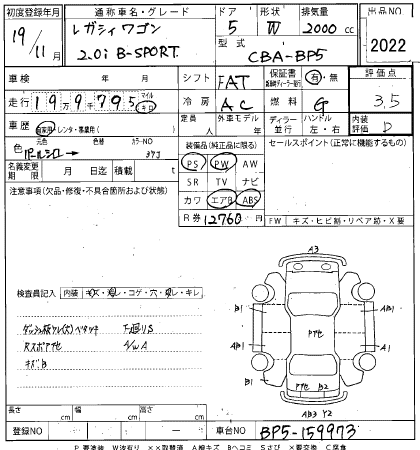 初度登録年月 通称車名・グレード ドア 形状 排気量 出品NO
19年 11月 レガシィ ワゴン 2.0i B-SPORT 5 W 2000 cc 2022
型式 CBA-BP5
車検 年 月 シフト FAT 保証書 有・無 評価点
走行 199795 マイル キロ 冷房 AC 燃料 G 3.5
車歴 自家用・レンタ・事業用( ) 定員 人 外車モデル 年 ディーラー・並行 ハンドル 左・右 内装評価 D
色 元色 パールシロ → 色替 カラーNO 37J
装備品(純正品に限る) セールスポイント(正常に機能するもの)
名義変更期限 月 日迄 積載量 t PS PW AW
SR TV ナビ
注意事項(欠品・修復・不具合箇所および状態) カワ エアB ABS
R券 12760 円 FW キズ・ヒビ割・リペア跡・X要
検査員記入 内装 キズ・汚レ・コゲ・穴・スレ・キレ
A3
B1 B1
A1 A1
P他
P他 B2
AB3 Y2
長さ cm 幅 cm 高さ cm
登録NO 車台NO BP5-159973
P 要塗装 W波有り ××取替済 A線キズ Bヘコミ Sサビ ×要交換 C腐食